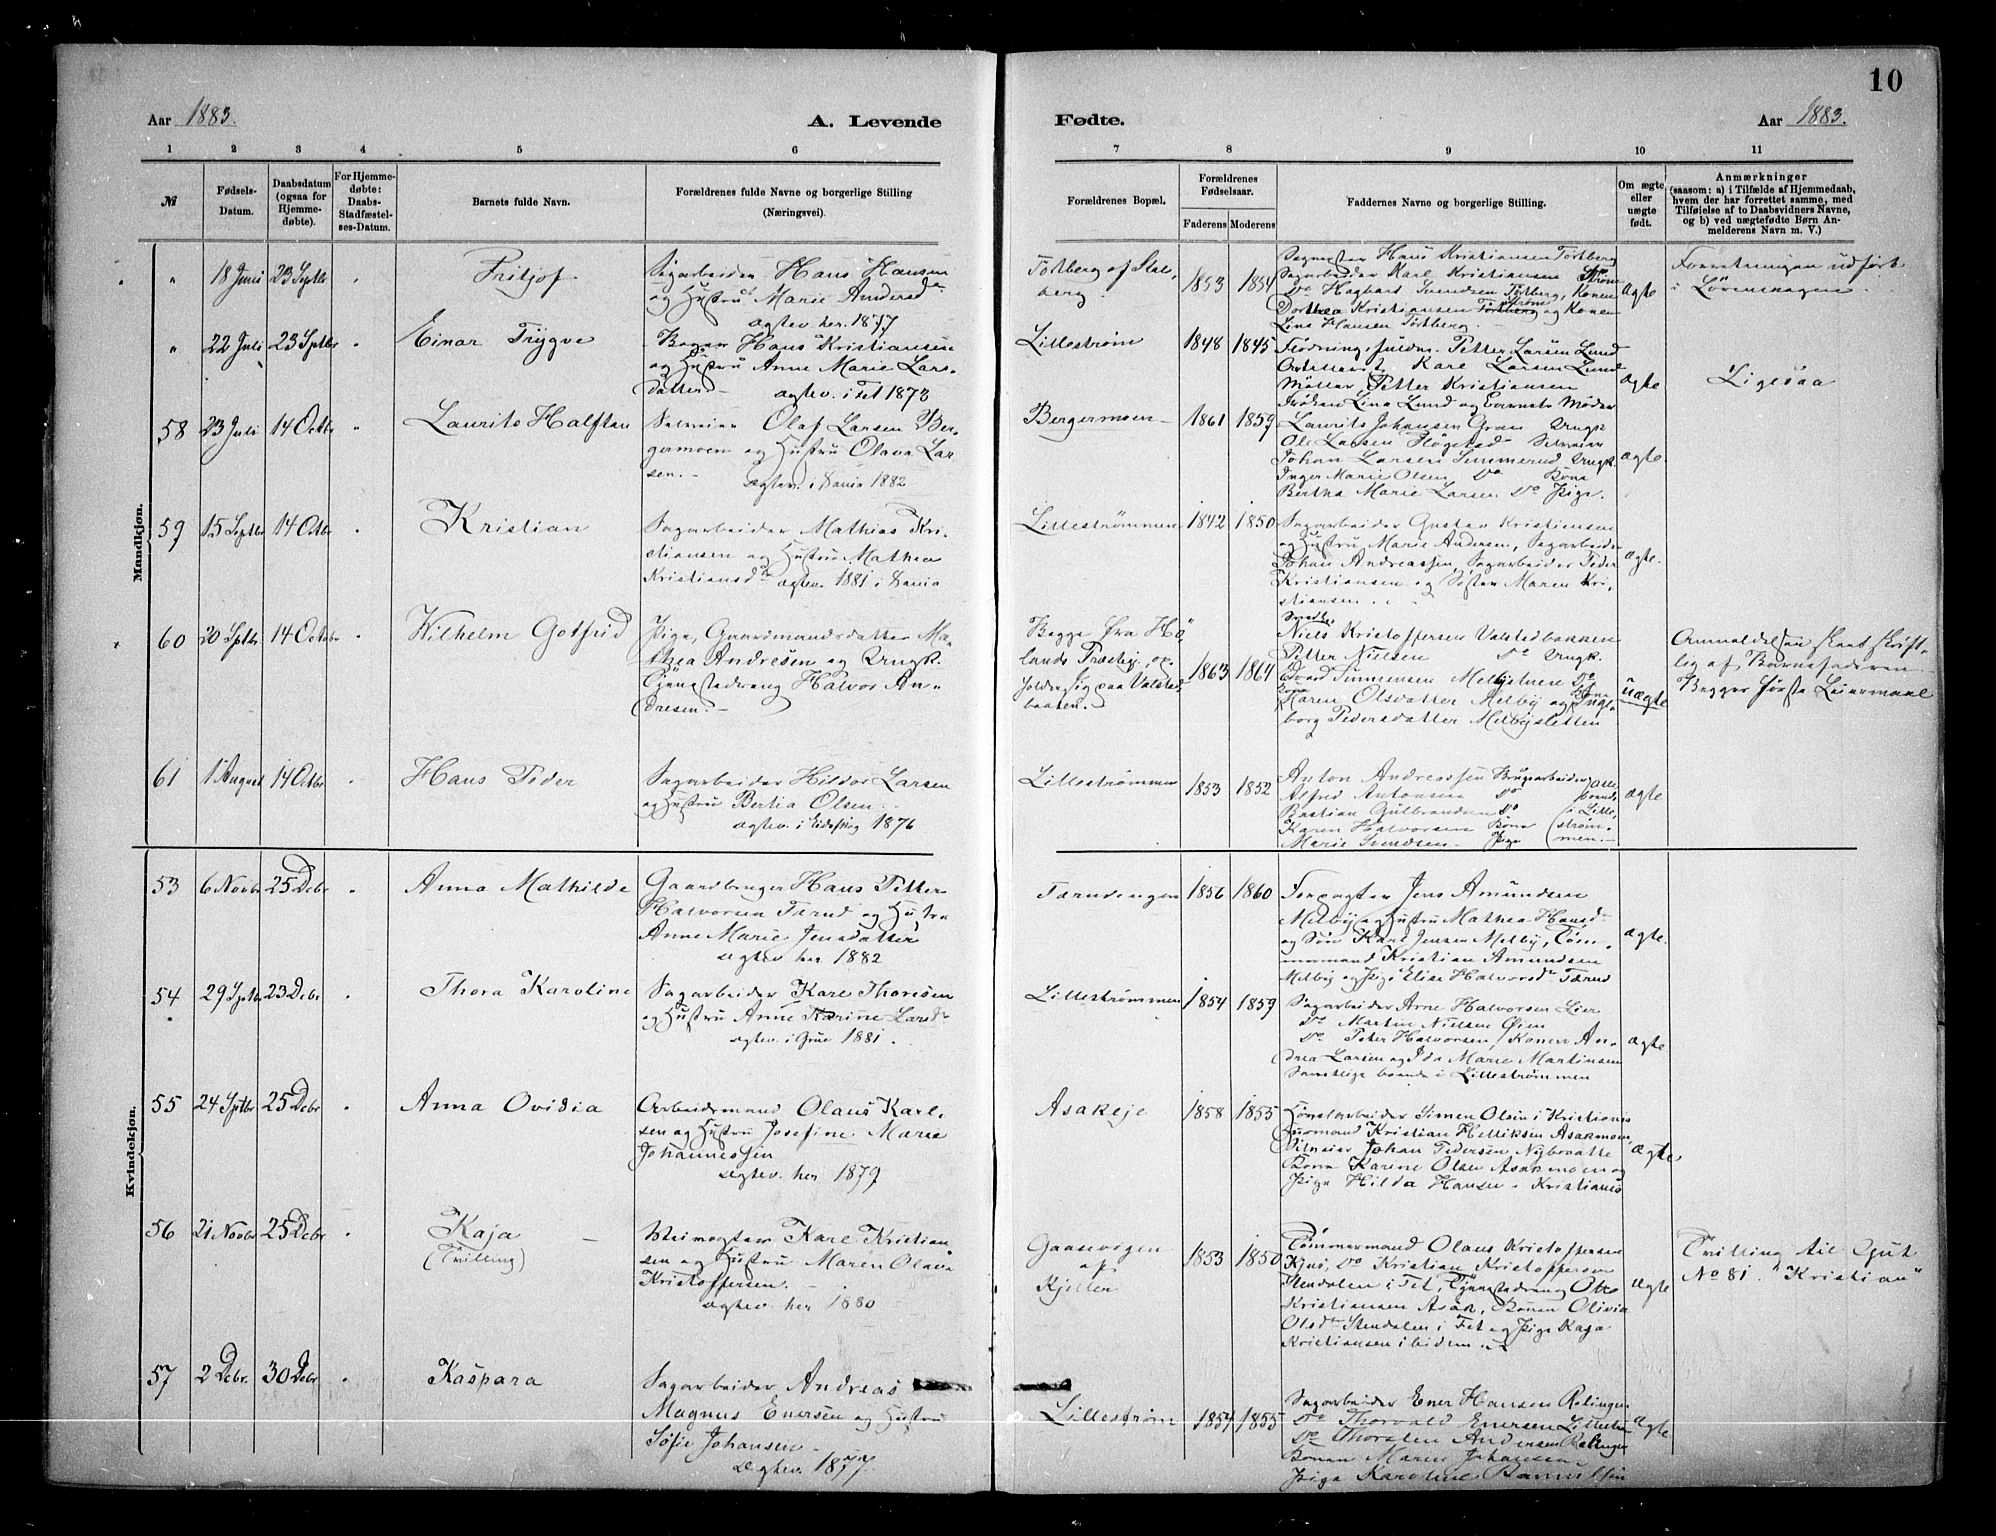 10
Aar 1883.
A. Levende
Fødte.
Aar 1883.
1 2 3 4 5 6
7 8 9 10 11
№
Fødsels-
Datum.
Daabsdatum
(ogsaa for
Hjemme-
døbte).
For Hjemme-
døbte:
Daabs-
Stadfæstel-
ses-Datum.
Barnets fulde Navn.
Forældrenes fulde Navne og borgerlige Stilling
(Næringsvei).
Forældrenes Bopæl.
Forældrenes
Fødselsaar.
Faderens Moderens
Faddernes Navne og borgerlige Stilling.
Om ægte
eller
uægte
født.
Anmærkninger
(saasom: a) i Tilfælde af Hjemmedaab,
hvem der har forrettet samme, med
Tilføielse af to Daabsvidners Navne,
og b) ved uægtefødte Børn An-
melderens Navn m. V.)
Mandkjøn.
" 18 Juni 23 Septbr Fritjof
Sagarbeider Hans Hansen
og Hustru Marie Andersd
ægtev. her. 1877
1853 1854
Hans Kristiansen Tortberg
Sagarbeider Karl Kristiansen
Do Hagbart Svendsen Tortberg, Konen
Dorthea Kristiansen Tortberg og Konen
Lina Hansen Tortberg
Ægte
Forretningen udført
i Lørenskogen
" 22 Juli 23 Sptbr Einar Trygve
Hans Kristiansen
og Hustru Anne Marie Lars-
datter
ægtev. i Fet 1873
Lillestrøm 1848 1845
Petter Larsen Lund
Karl Larsen Lund
Møller Petter Kristiansen
Frøken Lina Lund og Barnets Moder
Ægte
Ligesaa
58 23 Juli 14 Octbr Laurits Halftan
Olaf Larsen Ber-
germoen og Hustru Olava Lar-
sen.
ægtev. i Dania 1882
Bergermoen 1861 1859
Laurits Johansen Gran Ungk
Ole Larsen
Johan Larsen Simmerud Ungk.
Inger Marie Olsen Do Kone
Bertha Marie Larsen Do Pige.
Ægte.
59 15 Septbr 14 Octbr Kristian
Sagarbeider Mathias Kri-
stiansen og Hustru Mathea
Kristiansd ægtev. 1881 i Dania
Lillestrømmen 1842 1850
Sagarbeider Gustav Kristiansen
og Hustru Marie Andersen, Sagarbeider
Johan Andreassen, Sagarbeider Peder
Kristiansen og Søster Maren Kri-
stiansen.
Ægte.
60 20 Sptbr 14 Octbr Wilhelm Gotfrid
Pige, Gaardmandsdatter Ma-
thea Andresen og Ungk.
Tjenestedreng Halvor An-
dresen.
Begge fra Hø-
1863 1864
Niels Kristoffersen Valstadbakken
Petter Nielsen Do Ungk.
Maren Olsdatter Melby og Inge-
borg Pedersdatter Melbysletten
uægte
Anmeldelsen skeet skrift-
lig af Barnefaderen
Begges første Leiermaal
61 1 August 14 Octbr Hans Peder
Sagarbeider Hildor Larsen
og Hustru Bertia Olsen.
ægtev. i Eidsvog 1876
Lillestrømmen 1853 1852
Anton Andreassen Brugsarbeider
Alfred Antonsen Do
Bastian Gulbrandsen Do
Karen Halvorsen Kone
Marie Svendsen Pige
Ægte
Kvindekjøn.
53 6 Novbr 25 Debr Anna Mathilde
Gaardbruger Hans Petter
Halvorsen Tærud og Hustru
Anne Marie Jensdatter
ægtev her 1882
Tærudengen 1856 1860
Forpagter Jens Amundsen
Melby og Hustru Mathea Hansd
og Søn Karl Jensen Melby, Tøm-
mermand Kristian Amundsen
Melby og Pige Elise Halvorsd Tærud
Ægte.
54 29 Sptbr 23 Debr Thora Karoline
Sagarbeider Karl Thoresen
og Hustru Anne Karine Larsd
ægtev. i Grue 1881.
Lillestrømmen 1854 1859
Sagarbeider Arne Halvorsen Lier
Do Martin Nielsen Øien
Do Peter Halvorsen, Konen An-
drea Larsen og Ida Marie Martinsen
Samtlige boende i Lillestrømmen
Ægte.
55 24 Sptbr 25 Debr Anna Ovidia
Arbeidsmand Olaus Karl-
sen og Hustru Josefine Marie
Johannessen
ægtev. her 1879
Asakeje 1858 1855
Simen Olsen i Kristiania
Husmand Kristian Helliksen Asakmoen
Johan Pedersen
Kone Karene Olsen Asakmoen og
Pige Hilda Hansen Kristiania
Ægte
56 21 Novbr 25 Debr Kaja
(Tvilling)
Veivogter Karl Kristian-
sen og Hustru Maren Olava
Kristoffersen.
ægtev her 1880
Gaasevigen
af
Kjeller
1853 1850
Tømmermand Olaus Kristoffersen
Kjus, Do Kristian Kristoffersen
Stendalen i Fet, Tjenestedreng Otto
Kristiansen Asak, Konen Olivia
Olsd Stendalen i Fet og Pige Kaja
Kristiansen ibidem.
Ægte
Tvilling til Gut
No 81. "Kristian"
57 2 Debr. 30 Debr Kaspara
Sagarbeider Andreas
Magnus Enersen og Hustru
Sofie Johansen
Ægtev. 1877.
Lillestrøm 1854 1855
Sagarbeider Ener Hansen Rælingen
Do Thorvald Enersen Lillestrøm
Do Thorsten Andersen Rælingen
Konen Maren Johansen
Pige Karoline
Ægte